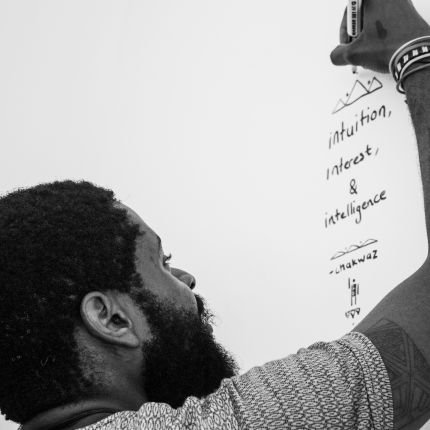 intuition,
interest,
&
intelligence
-CHAKWAZ